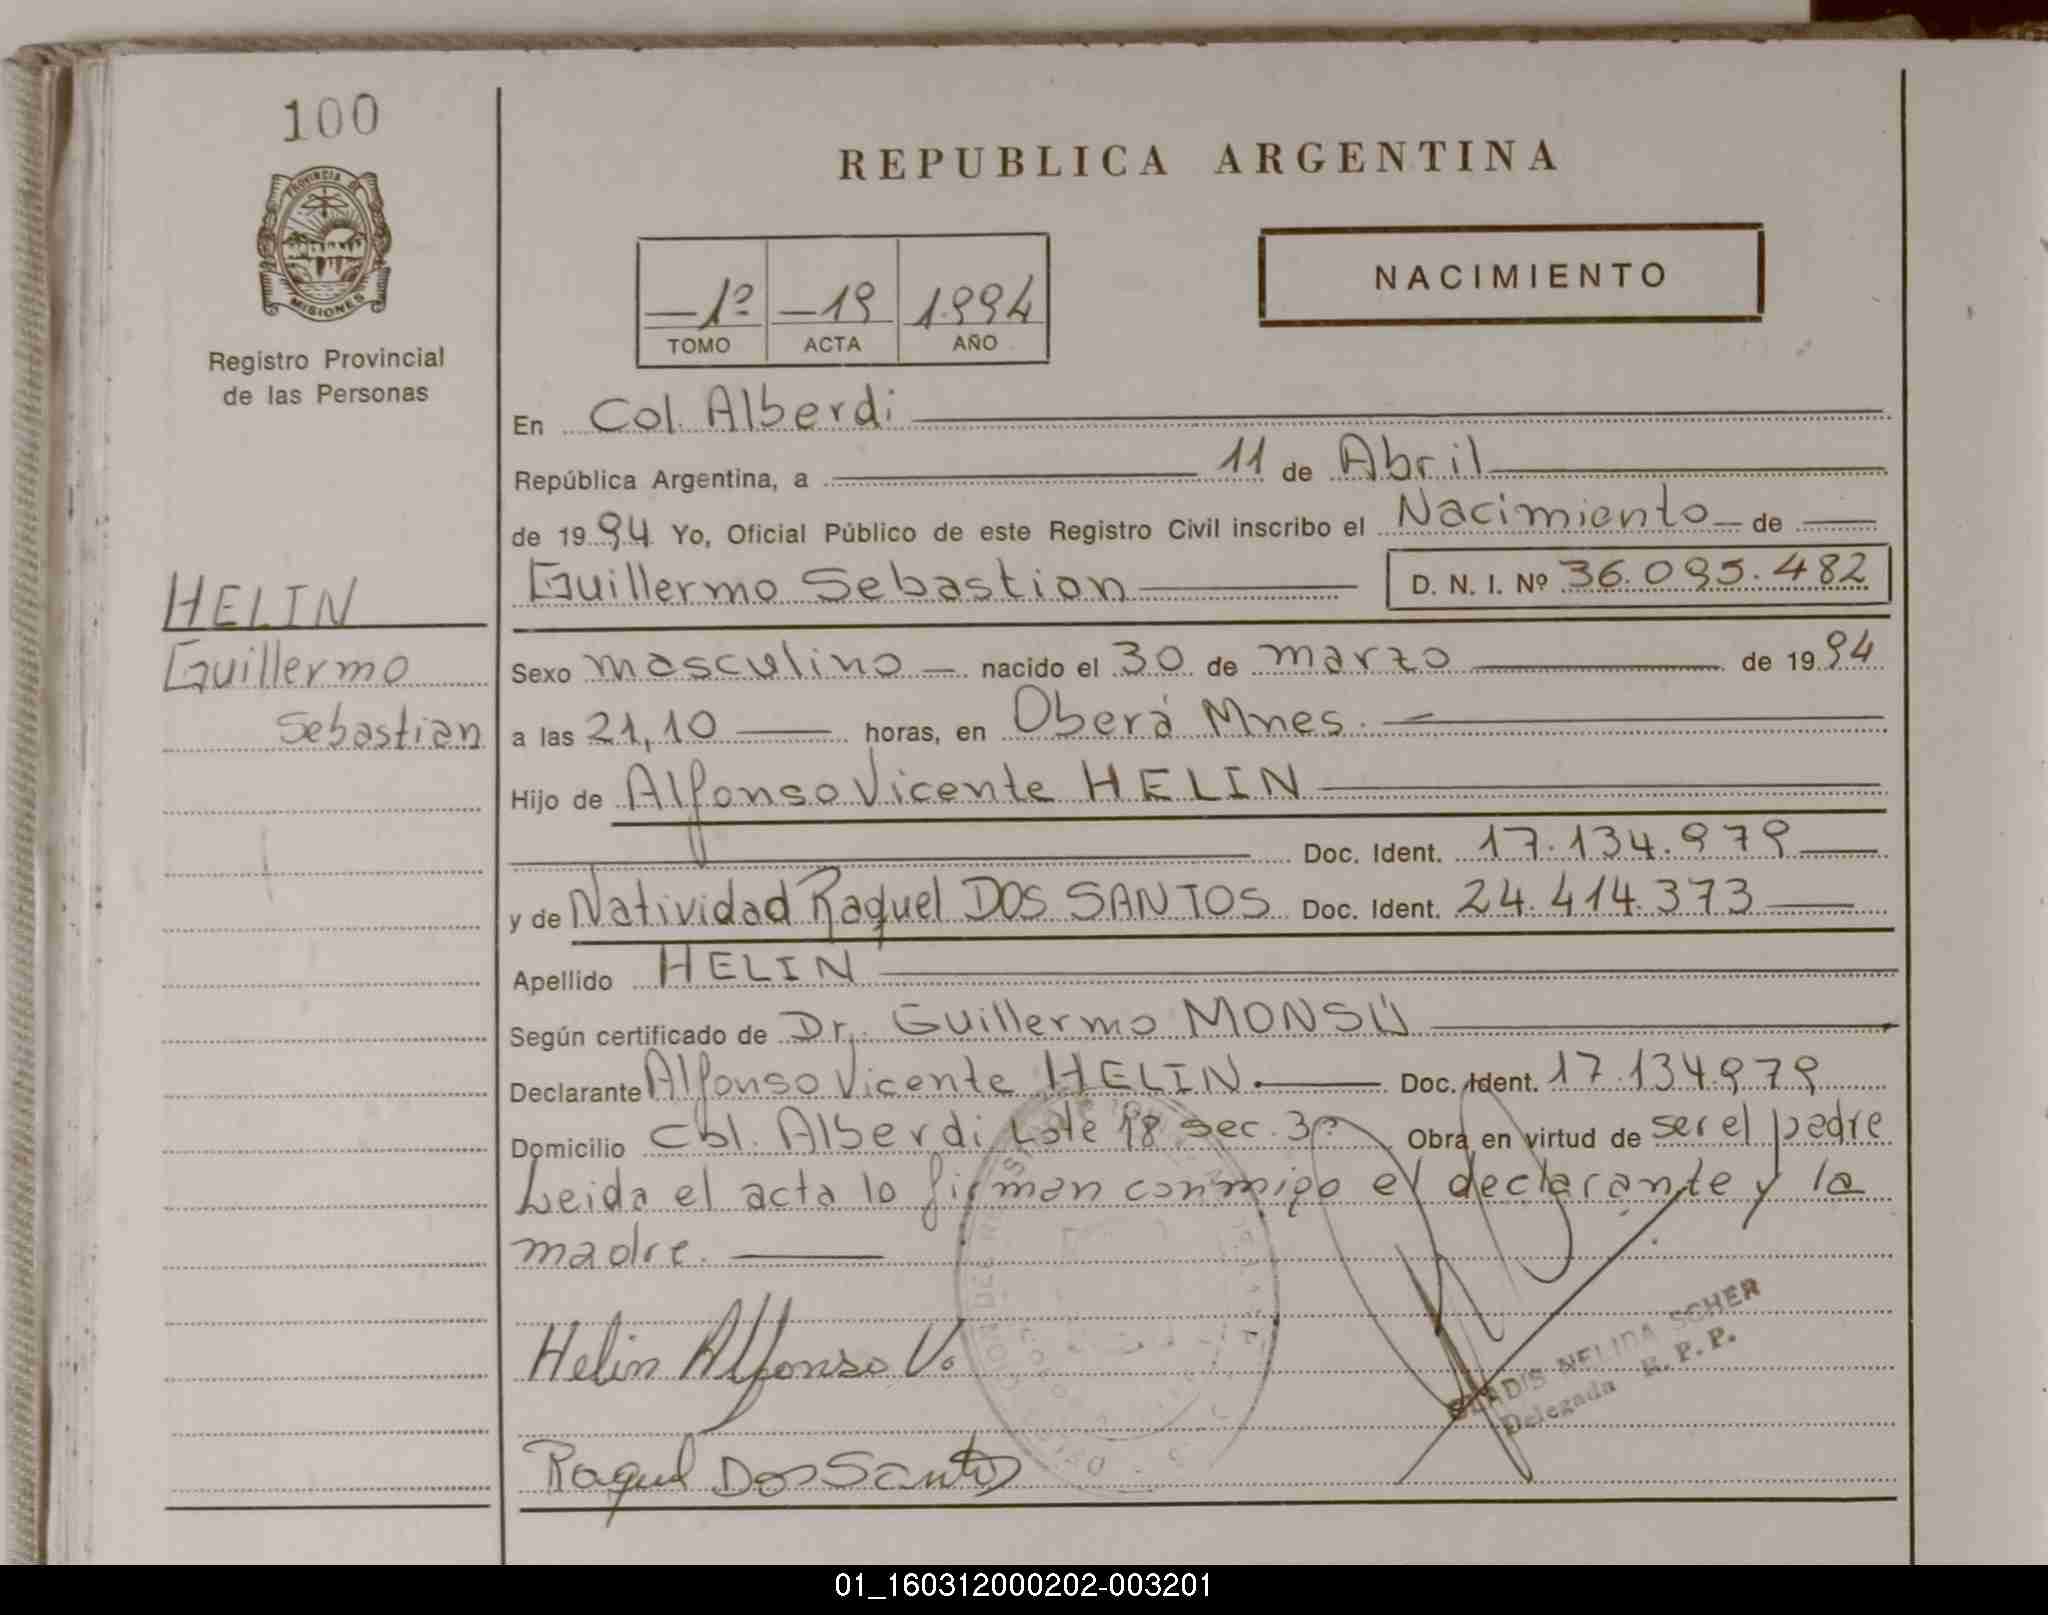 100
PROVINCIA DE
MISIONES
Registro Provincial
de las Personas
HELIN
Guillermo
Sebastian
REPUBLICA ARGENTINA
NACIMIENTO
1º 19 1.994
TOMO ACTA AÑO
En Col. Alberdi
República Argentina, a 11 de Abril
de 1994 Yo, Oficial Público de este Registro Civil inscribo el Nacimiento de
Guillermo Sebastian D. N. I. Nº 36.095.482
Sexo masculino nacido el 30 de marzo de 1994
a las 21,10 horas, en Oberá Mnes.
Hijo de Alfonso Vicente HELIN
Doc. Ident. 17.134.979
y de Natividad Raquel DOS SANTOS Doc. Ident. 24.414.373
Apellido HELIN
Según certificado de Dr. Guillermo MONSÚ
Declarante Alfonso Vicente HELIN. Doc. Ident. 17.134.979
Domicilio Col. Alberdi Lote 98 sec. 3º Obra en virtud de ser el padre
Leida el acta lo firman conmigo el declarante y la
madre.
Helin Alfonso V.
GLADIS NELIDA SCHER
Delegada R. P. P.
Raquel Dos Santos
01_160312000202-003201